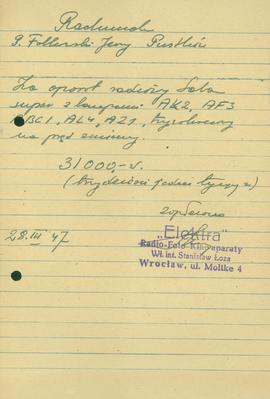 Rachunek
P. Follerski Jerzy Pustków
Za aparat radiowy Saba
super z lampami AK2, AF3
ABC1, AL4, AZ1,
na prąd zmienny.
31000,- zł.
(trzydzieści jeden tysięcy zł)
28. III 47
„Elektra”
Radio-Foto Kinoaparaty
Wł. inż. Stanisław Łoza
Wrocław, ul. Moltke 4